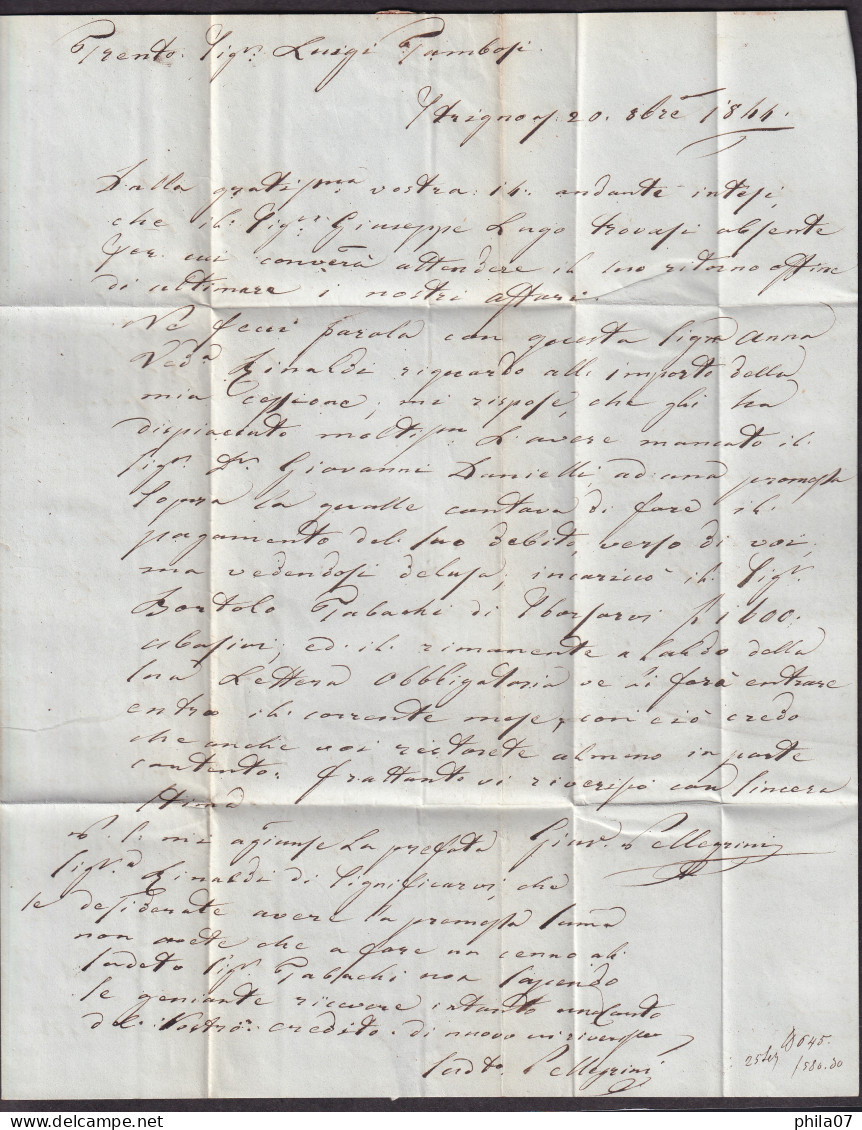 Trento. Sigr. Luigi Tambosi.
Strigno, 20. 8bre 1844.
Dalla gratisma vostra 14. andante intesi,
che il Sigr. Giuseppe Lugo trovasi absente
per cui converà attendere il suo ritorno affine
di ultimare i nostri affari.
Ne feci parola con questa Signa Anna
Veda Rinaldi riguardo all' importo della
mia Cessione, mi rispose, che gli ha
dispiaciuto moltisso L'avere mancato il
Sigr. Dr. Giovanni Danielli, ad una promessa
sopra la qualle contava di fare il
pagamento del suo debito, verso di voi,
ma vedendosi delusa, incaricò il Sigr.
Bortolo Tabachi di Sborsarvi f 1600:
abusivi, ed il rimanente a Saldo della
sua Lettera Obbligatoria ve lo farà entrare
entro il corrente mese, con ciò credo
che anche voi restarete almeno in parte
contento. Frattanto vi riverisco con sincera
stima
Giusè. Pellegrini
P. S. mi agiunse La prefata
Sigra. Rinaldi di significarvi, che
se desiderate avere la promessa suma
non avete che a fare un cenno al
sudeto Sigr. Tabachi non sapendo
se geniante ricevere intanto
del Vostro credito. di nuovo vi riverisco
sudto. Pellegrini
18645.
25 Sez /580.30
phila07